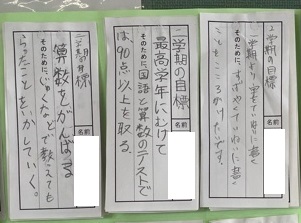 二学期の目標
学期より字をていねいに書く
そのために、
ていねいに書く
こころがけたいです。
名前
二学期の目標
最高学年にむけて
そのために、国語と算数のテストで
は、90点以上を取る。
名前
二学期の目標
算数をがんばる
そのために、じゅくなどで教えても
らったことをいかしていく。
名前